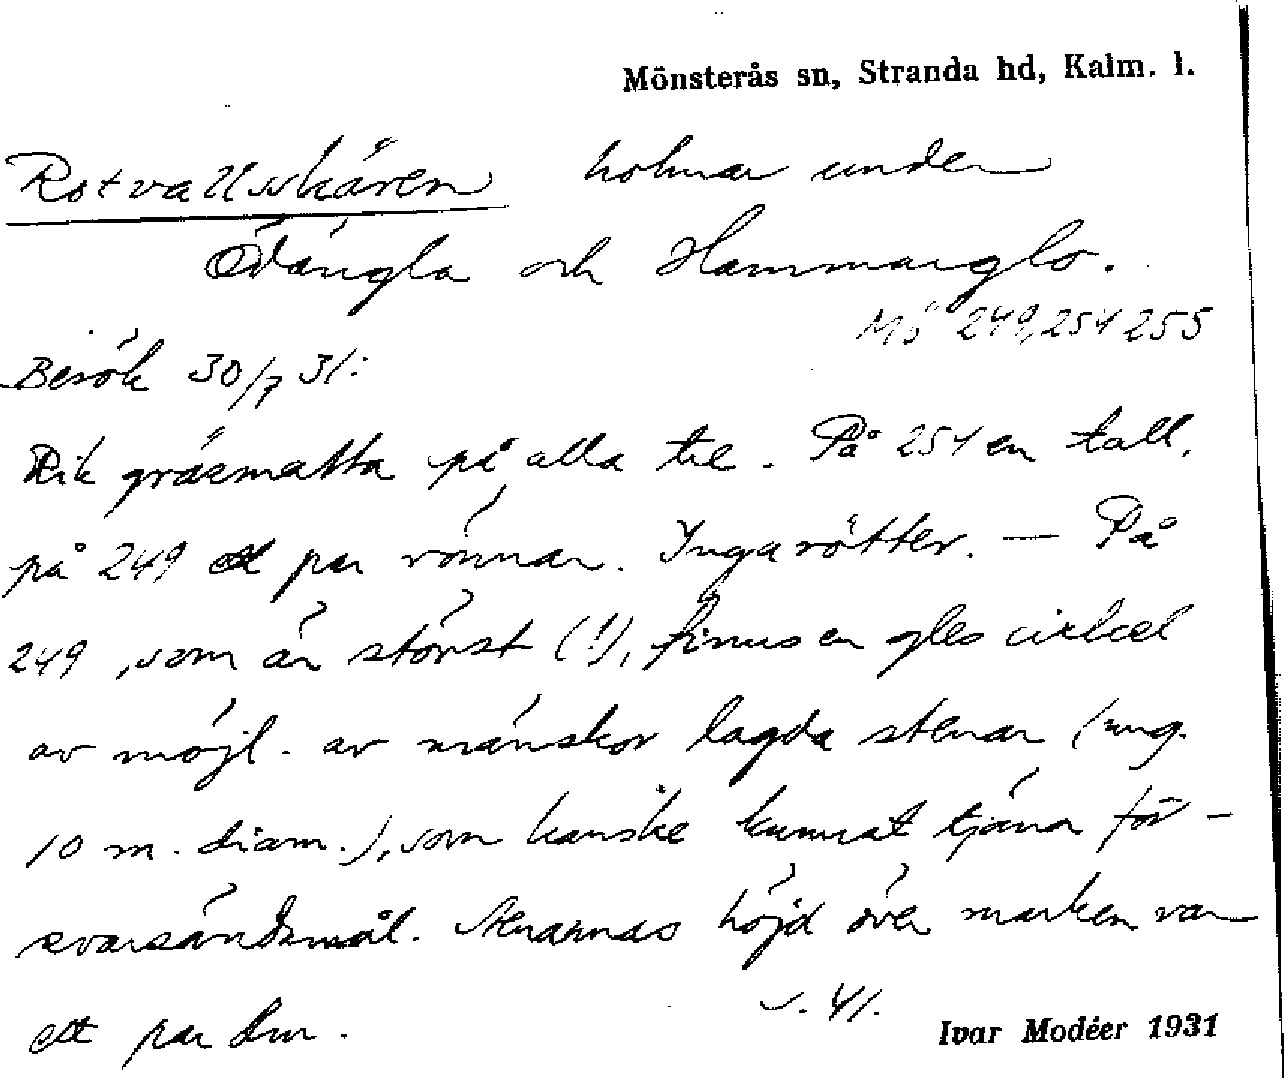 Mönsterås sn, Stranda hd, Kalm. l.
Rotvallsskären holmar under
Ödängla och Hammarglo.
Mö 249, 254 255
Besök 30/7 31:
Rik gräsmatta på alla tre. På 254 en tall,
på 249 ett par rönnar. Inga rötter. — På
249, som är störst (!), finnes en gles cirkel
av möjl. av mänskor lagda stenar (ung.
10 m. diam.), som kanske kunnat tjäna för-
svarsändamål. Stenarnas höjd över marken var
ett par dm.
s. 41.
Ivar Modéer 1931